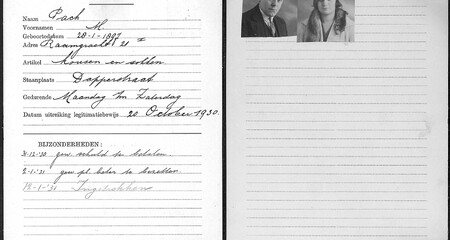 Naam Pach
Voornamen M.
Geboortedatum 28-1-1897
Adres Raamgracht 21
Artikel kousen en sokken
Staanplaats Dapperstraat
Gedurende Maandag t/m Zaterdag
Datum uitreiking legitimatiebewijs 20 October 1930.
BIJZONDERHEDEN:
31-12-'30 gew. schuld te betalen.
2-1-'31 gew. pl. beter te bezetten.
19-1-'31 Ingetrokken